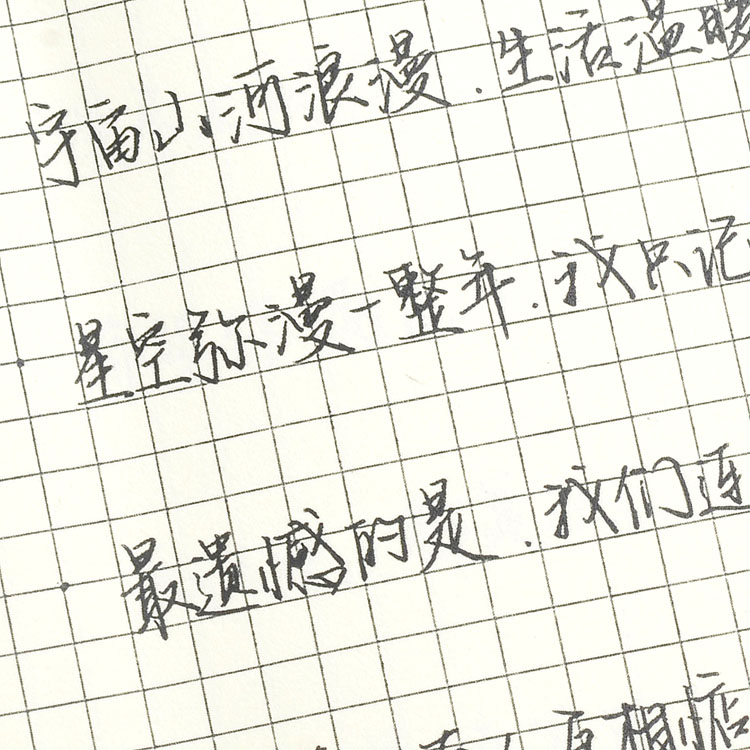 宇宙山河浪漫.生活温暖
星空弥漫一整年.我只记
最遗憾的是.我们连
互相惦